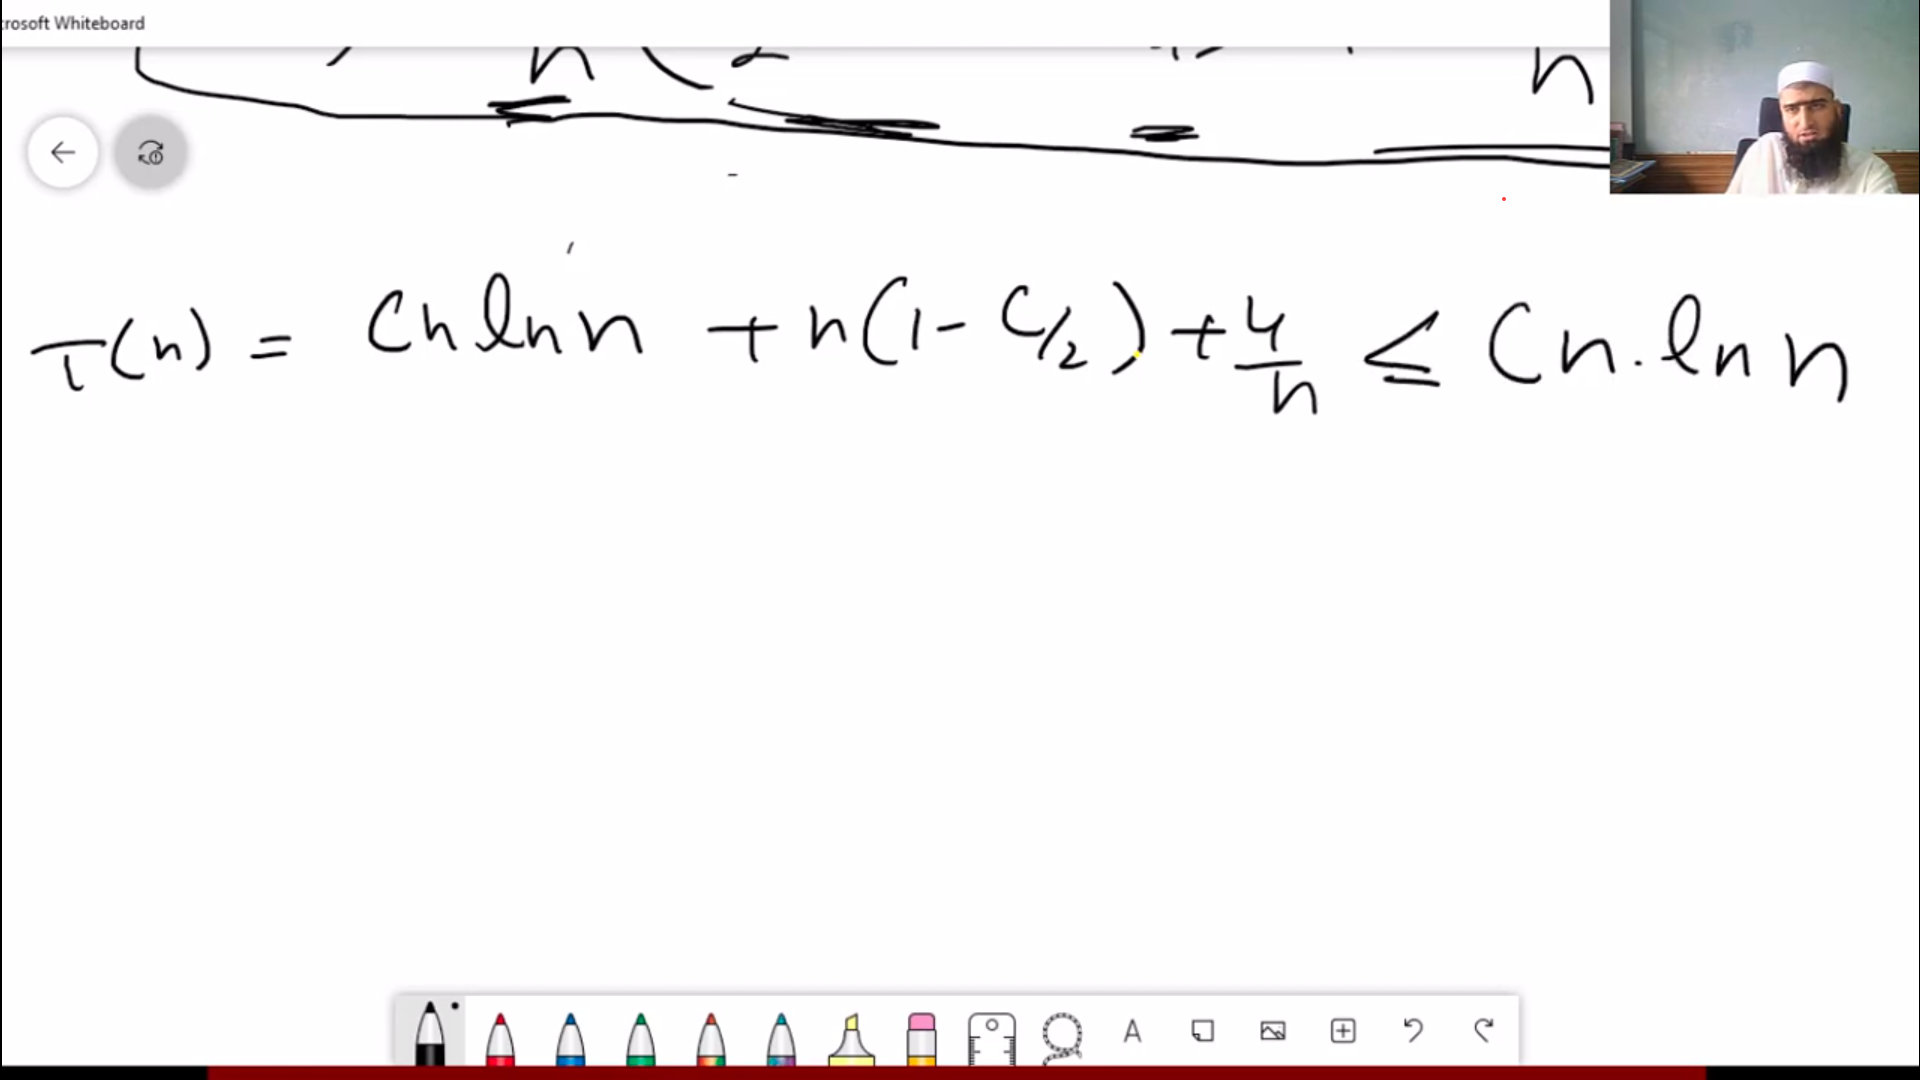 crosoft Whiteboard
n ( 2 n
T(n) = Cn ln n + n(1 - C/2) + 4/n ≤ Cn . ln n
A